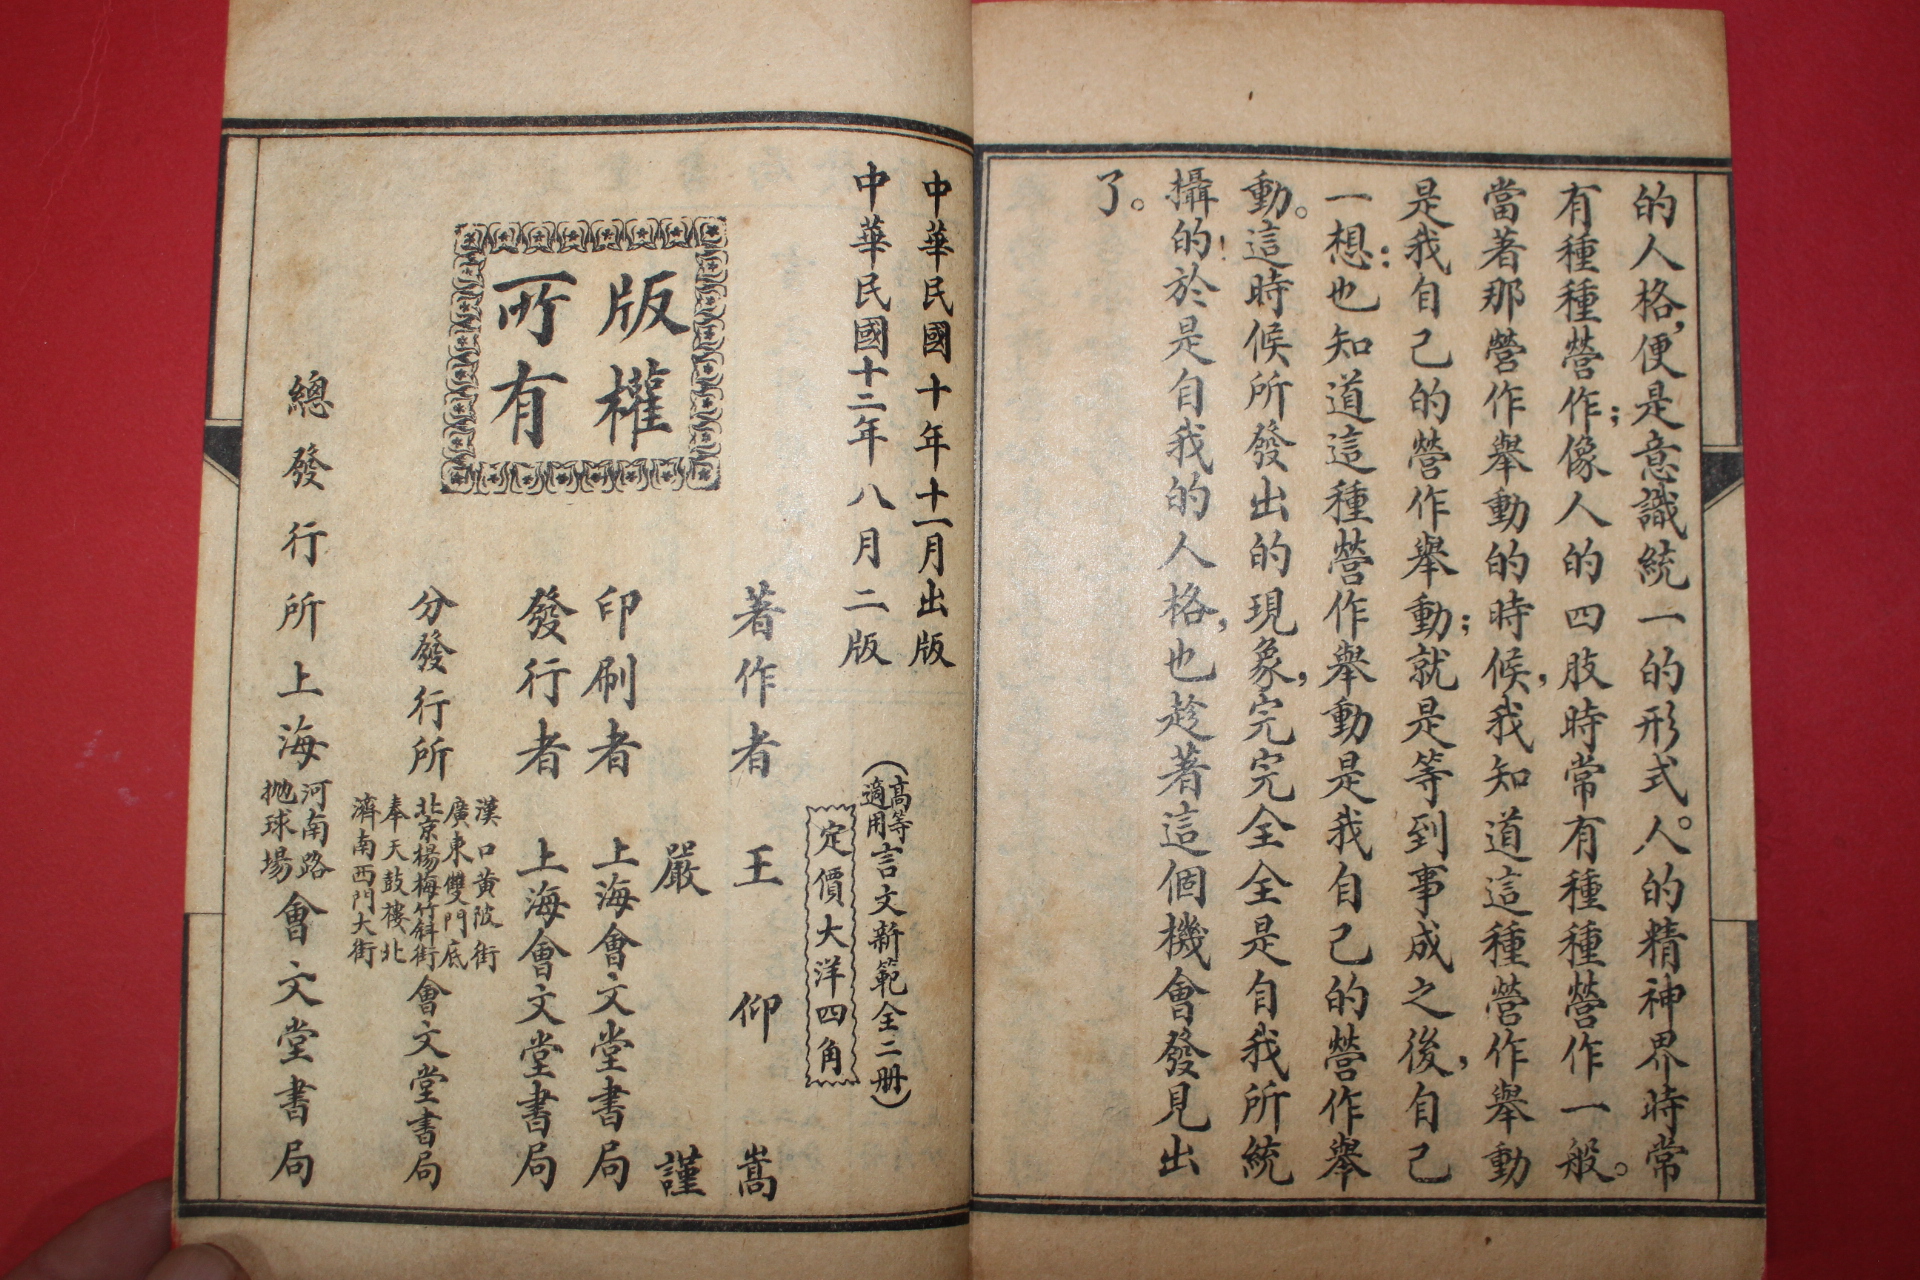 的人格,便是意識統一的形式。人的精神界時常
有種種營作;像人的四肢時常有種種營作一般。
當著那營作舉動的時候,我知道這種營作舉動
是我自己的營作舉動;就是等到事成之後,自己
一想:也知道這種營作舉動是我自己的營作舉
動。這時候所發出的現象,完完全全是自我所統
攝的!於是自我的人格,也趁著這個機會發見出
了。
中華民國十年十一月出版
中華民國十二年八月二版
版權
所有
(高等適用言文新範全二册)
定價大洋四角
著作者 王仰嵩
嚴謹
印刷者 上海會文堂書局
發行者 上海會文堂書局
分發行所
漢口黃陂街
廣東雙門底
北京楊梅竹斜街
奉天鼓樓北
濟南西門大街
會文堂書局
總發行所上海河南路拋球場會文堂書局